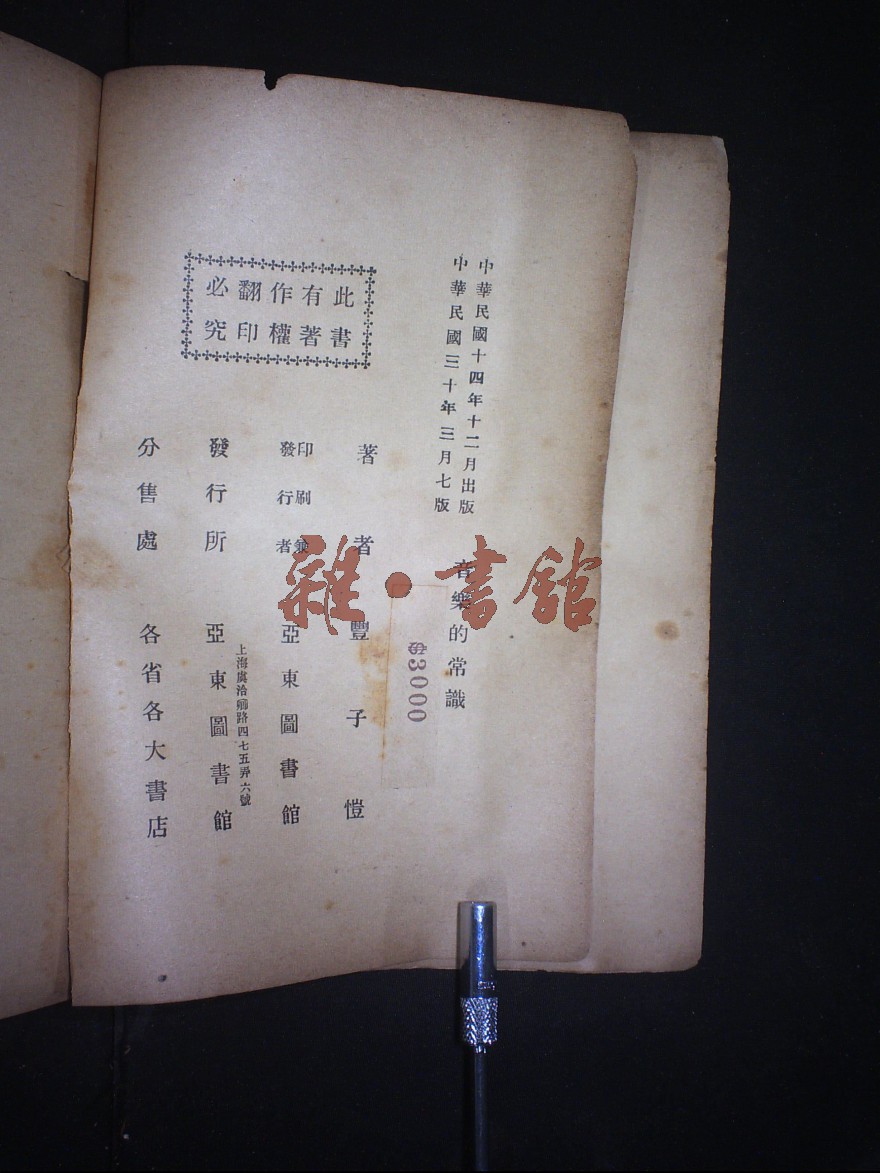 中華民國十四年十二月出版
中華民國三十年三月七版
音樂的常識
$3000
此書有著作權翻印必究
著者 豐子愷
印刷兼發行者 亞東圖書館
上海虞洽卿路四七五弄六號
發行所 亞東圖書館
分售處 各省各大書店
雜·書館